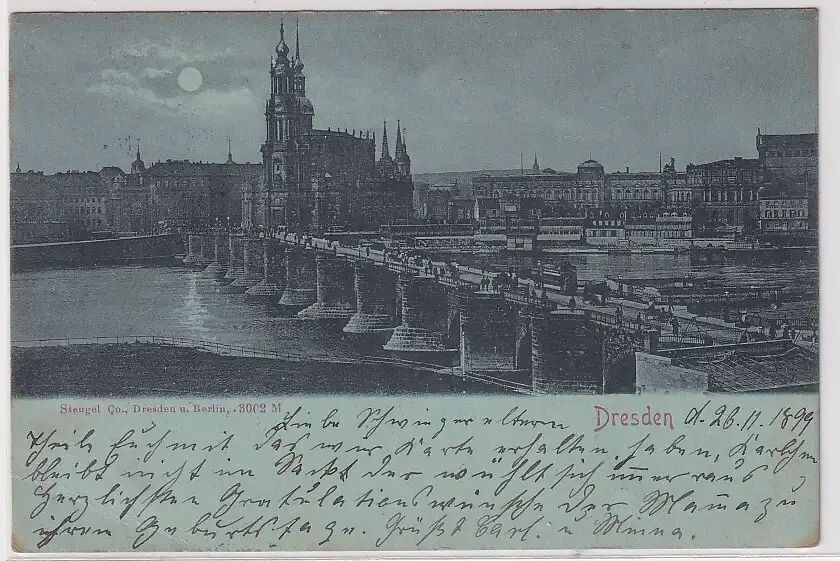 Stengel Co., Dresden u. Berlin, 3002 M
Dresden d. 26.11.1899
Liebe Schwiegereltern
Theile Euch mit das wir Karte erhalten haben, Karlchen
bleibt nicht im Sackt der wühlt sich immer raus
Herzlichsten Gratulationswünsche der Mama zu
ihren Geburtstage. Grüßt Carl. u Minna.